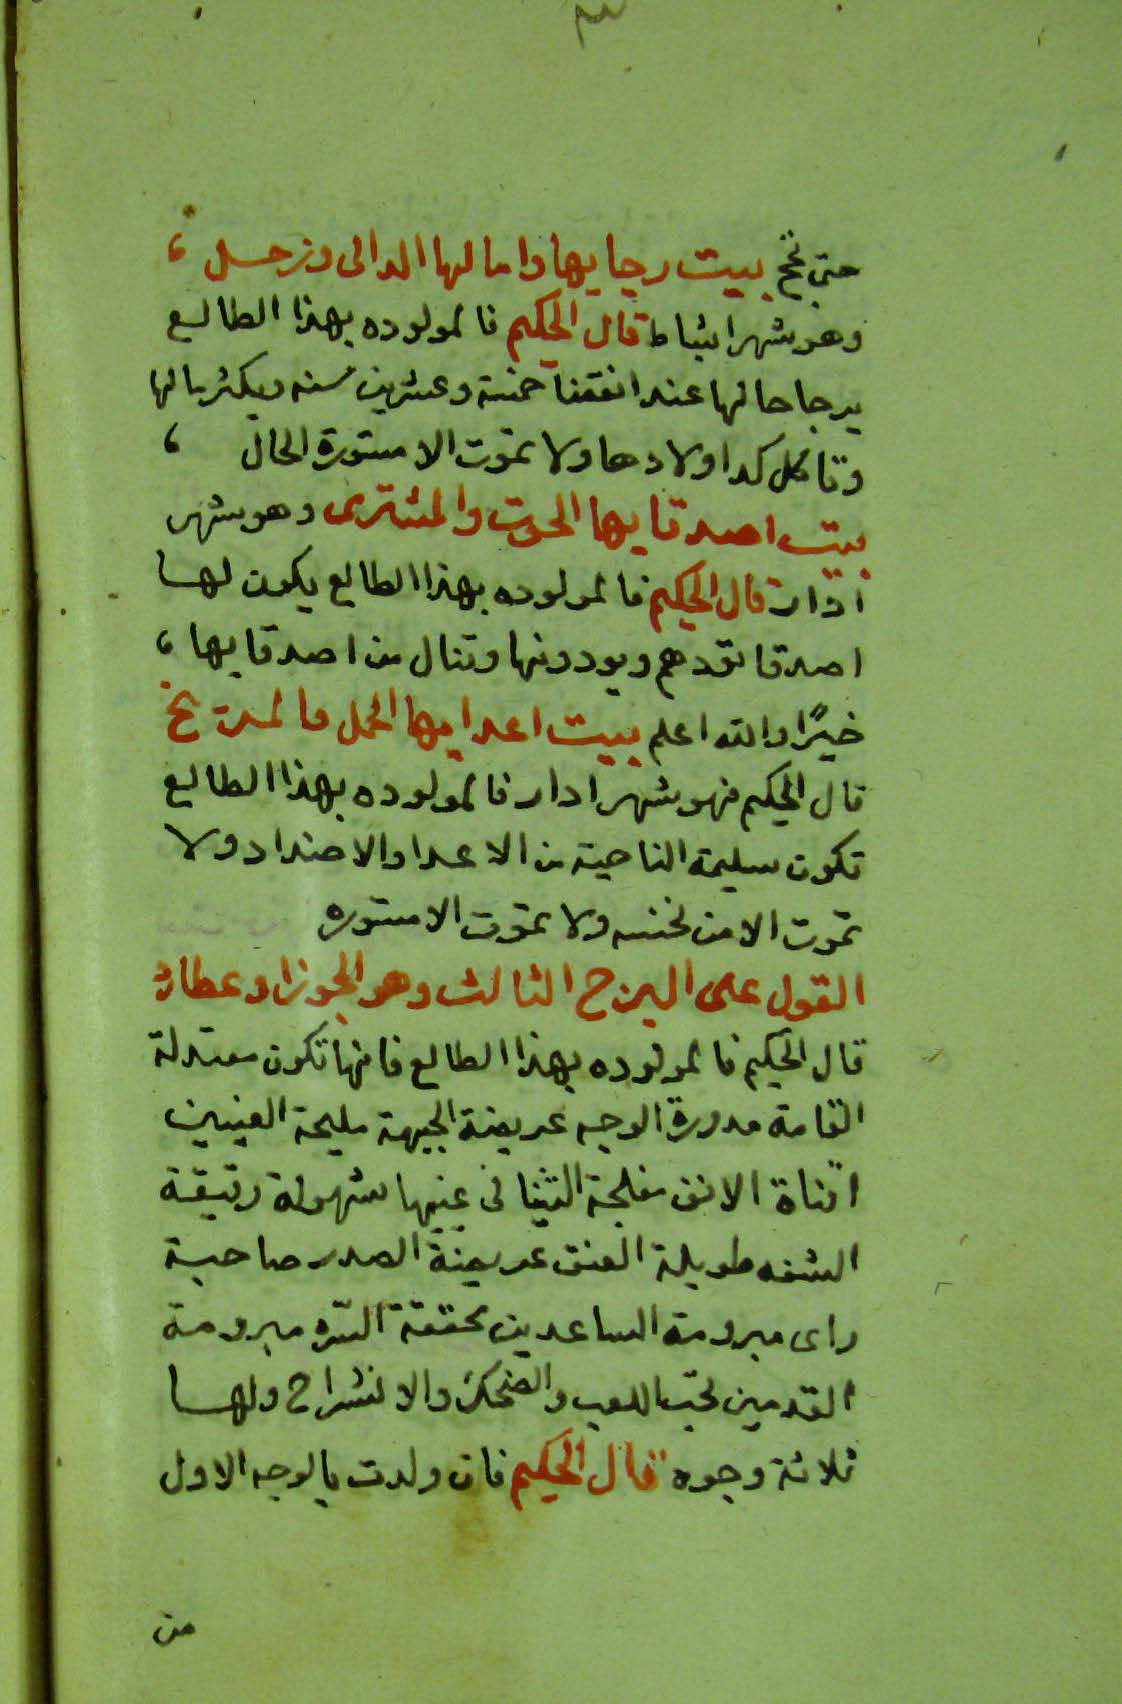 حتى تحج بيت رجايها وامالها الدالى وزحل ،
وهو شهر اشباط قال الحكيم فالمولوده بهذا الطالع
يرجا حالها عند انقضا خمسة وعشرين سنه ويكثر مالها
وتاكل كد اولادها ولا تموت الا مستورة الحال ،
بيت اصدقايها الحوت والمشترى وهو شهر
اذار قال الحكيم فالمولوده بهذا الطالع يكون لها
اصدقا تودهم ويودونها وتنال من اصدقايها ،
خيرًا والله اعلم بيت اعدايها الحمل والمريخ
قال الحكيم فهو شهر ادار فالمولوده بهذا الطالع
تكون سليمة الناحية من الاعدا والاضداد ولا
تموت الا من ولا تموت الا مستوره
القول على البرج الثالث وهو الجوزا وعطارد
قال الحكيم فالمولوده بهذا الطالع فانها تكون معتدلة
القامة مدورة الوجه عريضة الجبهة مليحة العينين
اقناة الانف مفلجة الثنايا فى عينيها شهولة رقيقة
الشفه طويلة العنق عريضة الصدر صاحبة
راى مبرومة الساعدين محققة السره مبرومة
القدمين تحب اللعب والضحك والانشراح ولها
ثلاثة وجوه قال الحكيم فان ولدت بالوجه الاول
من